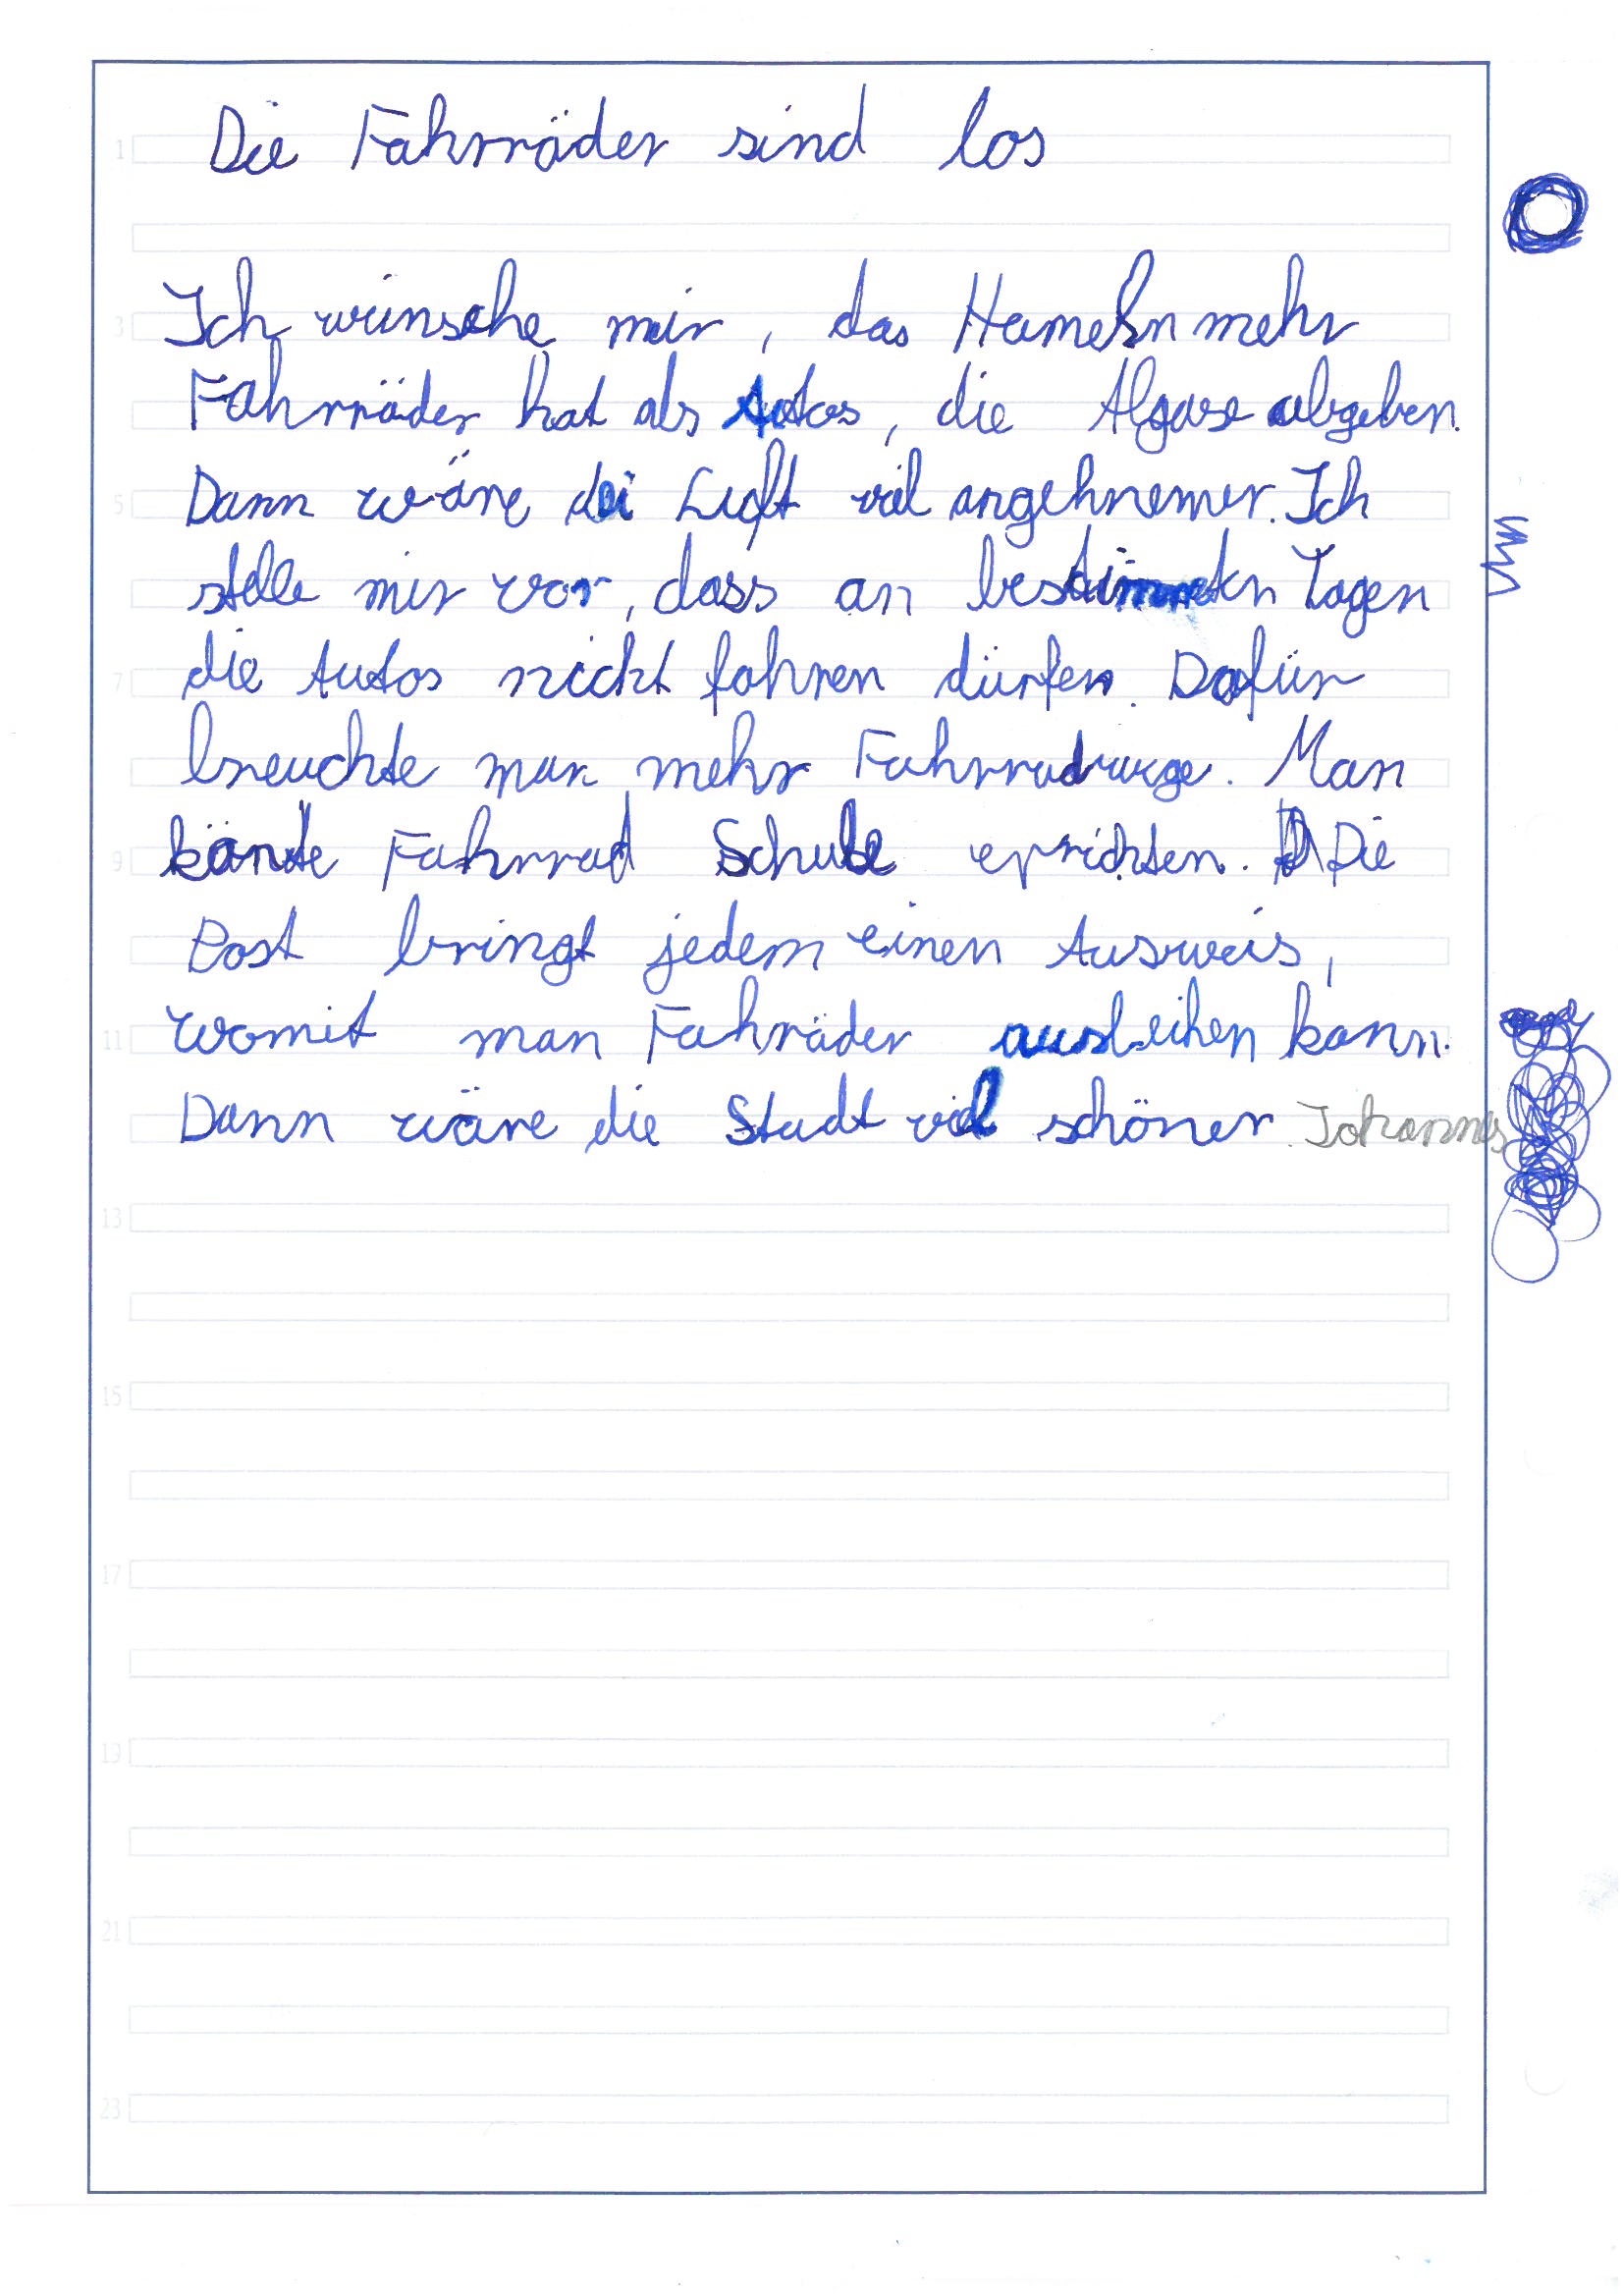 Die Fahrräder sind los
Ich wünsche mir, das Hameln mehr
Fahrräder hat als Autos, die Algase abgeben.
Dann wäre die Luft viel angehnemer. Ich
stelle mir vor, dass an bestimmten Tagen
die Autos nicht fahren dürfen. Dafür
breuchte man mehr Fahrradwege. Man
könnte Fahrrad Schule errichten. Die
Post bringt jedem einen Ausweis,
womit man Fahräder ausleihen kann.
Dann wäre die Stadt viel schöner. Johannes